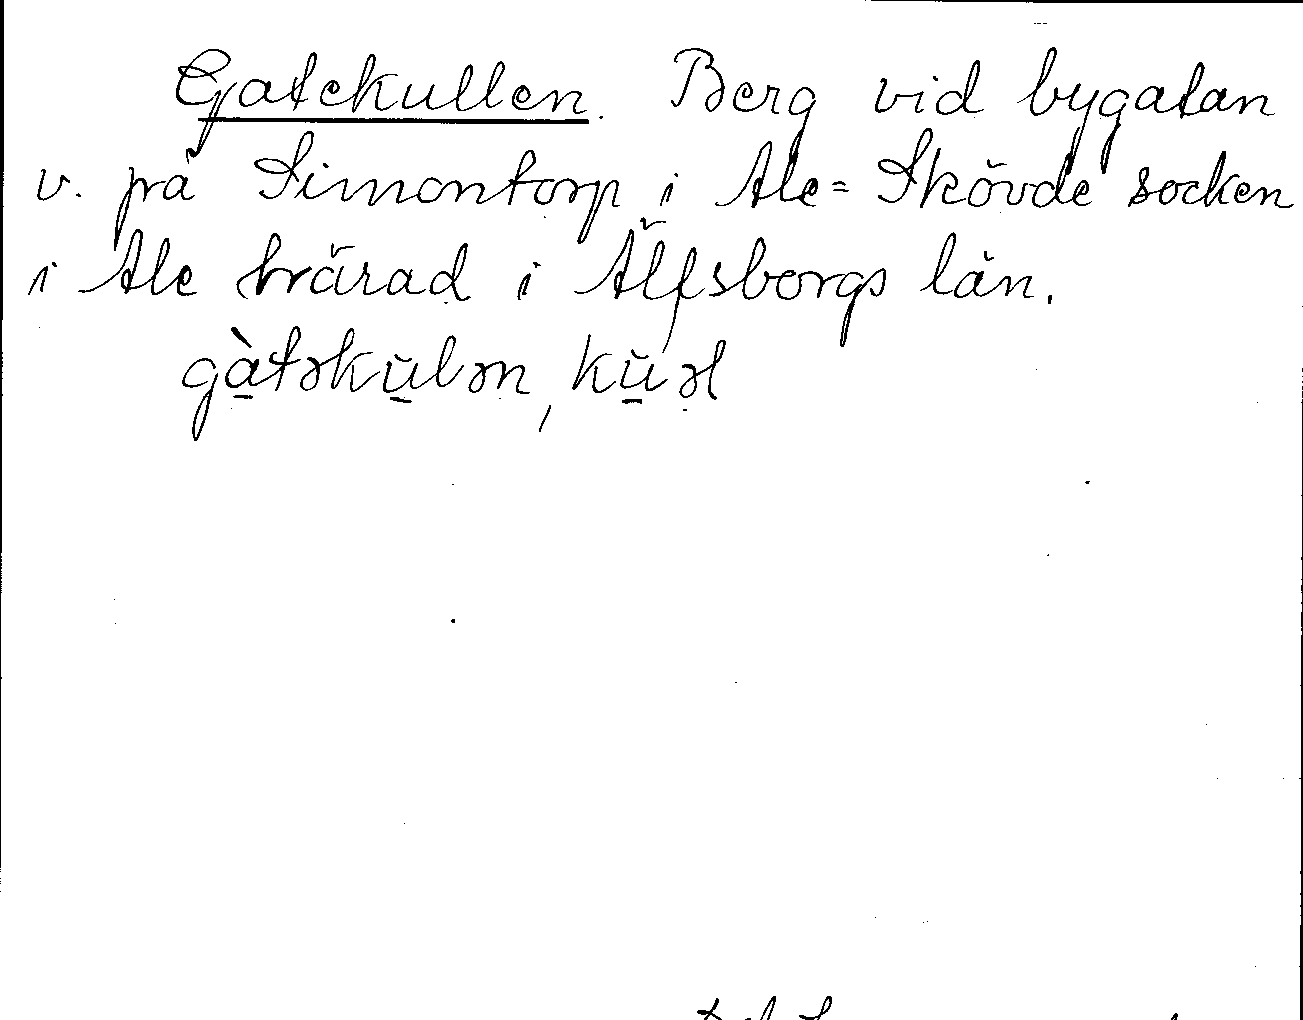 Gatekullen. Berg vid bygatan
v. på Simontorp i Ale=Skövde socken
i Ale härad i Älfsborgs län.
gàtəkŭlən, kŭəl